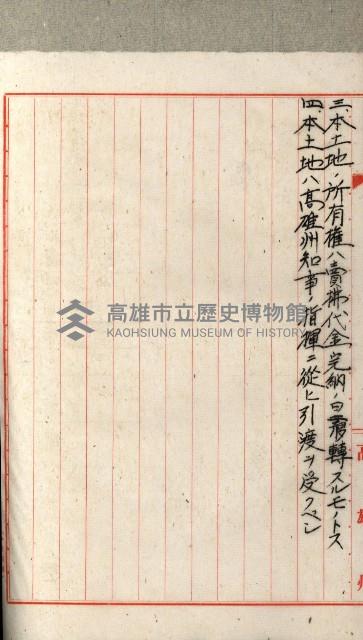 三、本土地ノ所有權ハ賣拂代金完納ノ日移轉スルモノトス
四、本土地ハ高雄州知事ノ指揮ニ從ヒ引渡ヲ受クベシ
高雄州
高雄市立歷史博物館
KAOHSIUNG MUSEUM OF HISTORY